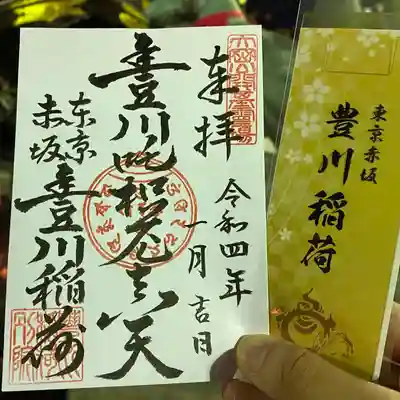 奉拝
令和四年
一月吉日
豊川吒枳尼真天
東京
赤坂
豊川稲荷
東京赤坂
豊川稲荷